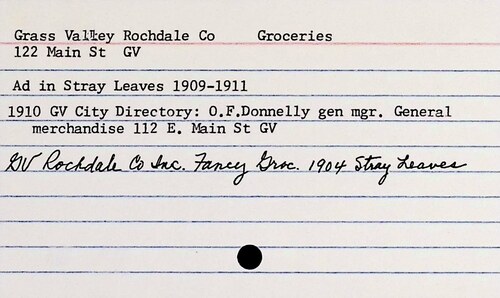 Grass Valley Rochdale Co Groceries
122 Main St GV
Ad in Stray Leaves 1909-1911
1910 GV City Directory: O.F.Donnelly gen mgr. General
merchandise 112 E. Main St GV
GV Rochdale Co Inc. Fancy Groc. 1904 Stray Leaves